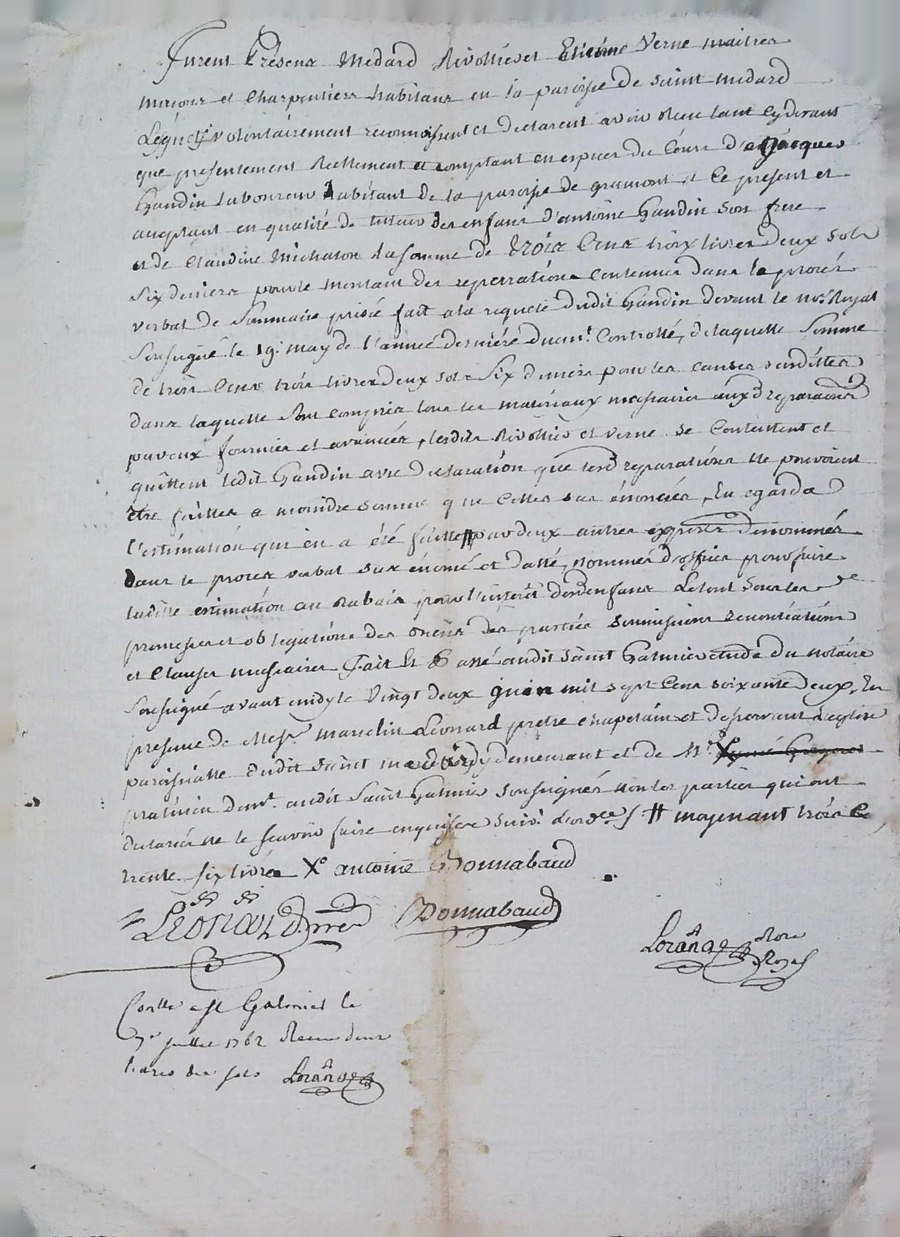 Furent Présens Médard Rivollier et Etiéne Verne maitres
massons et Charpentiers habitans en la paroisse de Saint Médard
Lesquels volontairement reconnoissent et declarent avoir Reçu tant cydevant
que présentement Réellement et comptant en especes du Cours d'e Jacques
Gaudin Laboureur habitant de la paroisse de gramont, et Ce présent et
acceptant en qualité de tutteur des enfans d'antoine Gaudin son frere
et de Claudine Michalon la somme de trois Cens troix livres deux sols
Six deniers pour le montant des repparrations Contenues dans le procès
verbal de Sommaire prisée fait a la requete dudit Gaudin devant le nore Royal
Soussigné le 19e may de l'année derniére duemt Controllé, de laquelle Somme
de trois Cens trois livres deux sols Six deniers pour les causes susdittes
dans laquelle sont compris tous les matériaux nessaires auxd reparaons
par eux fournies et avancées, lesdits Rivollier et Verne se Contentent et
quittent ledit Gaudin avec declaration que lesd reparations ne pouvoient
être faittes a moindre somme que celles sus énoncées, Eu egard a
l'estimation qui en a été faitte # par deux autres experts denommés
dans le procès verbal sus énoncé et datté, nommés d'office pour faire
laditte estimation au Rabais pour l'intérêt desd enfans Le tout sous les
promesses et obligations des biens des parties soumissions renontiations
et Clauses nessaires Fait et Passé audit Saint Galmier étude du notaire
Soussigné avant midy le Vingt deux Juin mil sept Cens soixante deux, En
presence de Messe marcelin Léonard pretre chapelain et desservant l'eglise
paroissialle dudit Saint médard y demeurant et de Mr X
praticien demt audit Saint Galmier Soussignés non les parties qui ont
declaré ne le scavoir faire enquises suivt l'ordce / # moyenant trois Ce
trente six livres Xo antoine Bonnabaud
Léonard ptre Bonnabaud
Lorange Nore Royal
Conlle a St Galmier le
7e Juillet 1762 Receu deux
livres dix sols Lorange